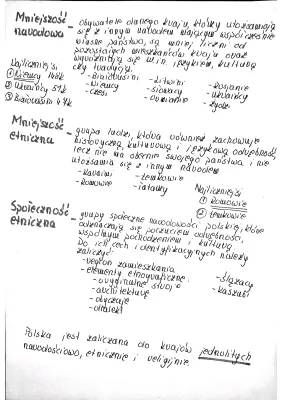 Mniejszość narodowa - obywatele danego kraju, którzy utożsamiają
się z innym narodem mającym współcześnie
własne państwo, są mniej liczni od
pozostałych mieszkańców kraju oraz
wyróżniają się m.in. językiem, kulturą
czy tradycją.
Najliczniejsi
① Niemcy 148k
② Ukraińcy 51k
③ Białorusini 47k
- Białorusini
- Niemcy
- Czesi
- Litwini
- Słowacy
- Ormianie
- Rosjanie
- Ukraińcy
- Żydzi
Mniejszość etniczna - grupa ludzi, która również zachowuje
historyczną, kulturową i językową odrębność,
lecz nie ma obecnie swojego państwa i nie
utożsamia się z innym narodem
- Karaimi
- Romowie
- Łemkowie
- Tatarzy
Najliczniejsi
① Romowie
② Łemkowie
Społeczność etniczna - grupy społeczne narodowości polskiej, które
odznaczają się poczuciem odrębności,
wspólnym pochodzeniem i kulturą
Do ich cech identyfikacyjnych należy
zaliczyć:
- region zamieszkania
- elementy etnograficzne:
- oryginalne stroje
- architekturę
- obyczaje
- dialekt
- Ślązacy
- Kaszubi
Polska jest zaliczana do krajów jednolitych
narodowościowo, etnicznie i religijnie.